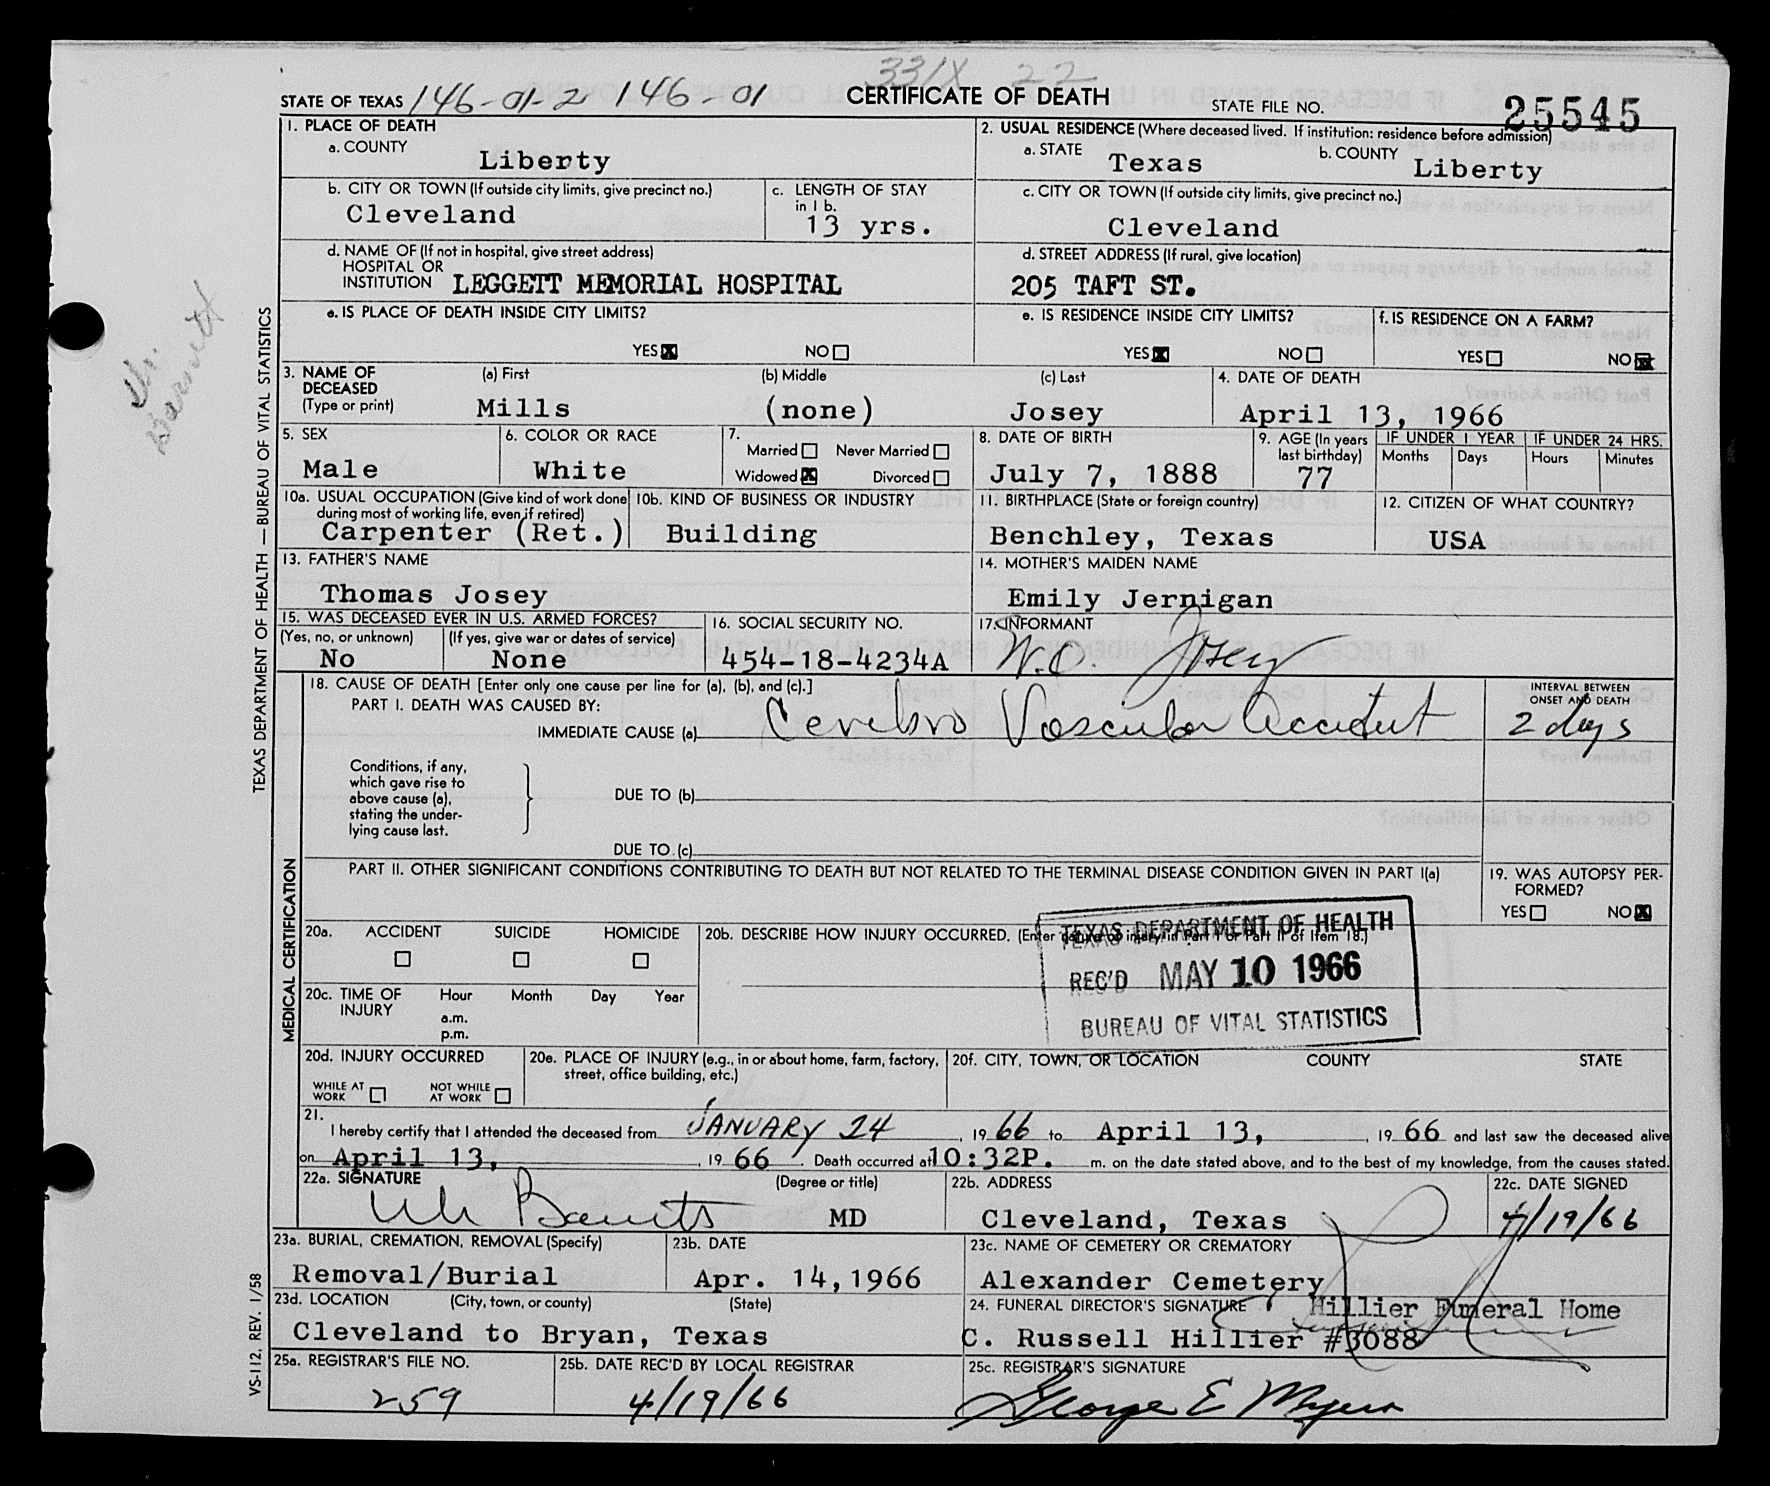 331X 22
STATE OF TEXAS 146-01-2 146-01 CERTIFICATE OF DEATH STATE FILE NO. 25545
1. PLACE OF DEATH
a. COUNTY Liberty
2. USUAL RESIDENCE (Where deceased lived. If institution: residence before admission)
a. STATE Texas b. COUNTY Liberty
b. CITY OR TOWN (If outside city limits, give precinct no.)
Cleveland
c. LENGTH OF STAY in 1 b.
13 yrs.
c. CITY OR TOWN (If outside city limits, give precinct no.)
Cleveland
d. NAME OF (If not in hospital, give street address)
HOSPITAL OR
INSTITUTION LEGGETT MEMORIAL HOSPITAL
d. STREET ADDRESS (If rural, give location)
205 TAFT ST.
e. IS PLACE OF DEATH INSIDE CITY LIMITS?
YES NO
e. IS RESIDENCE INSIDE CITY LIMITS?
YES NO
f. IS RESIDENCE ON A FARM?
YES NO
3. NAME OF DECEASED (Type or print)
(a) First (b) Middle (c) Last
Mills (none) Josey
4. DATE OF DEATH
April 13, 1966
5. SEX
Male
6. COLOR OR RACE
White
7.
Married Never Married
Widowed Divorced
8. DATE OF BIRTH
July 7, 1888
9. AGE (In years last birthday)
77
IF UNDER 1 YEAR IF UNDER 24 HRS.
Months Days Hours Minutes
10a. USUAL OCCUPATION (Give kind of work done during most of working life, even if retired)
Carpenter (Ret.)
10b. KIND OF BUSINESS OR INDUSTRY
Building
11. BIRTHPLACE (State or foreign country)
Benchley, Texas
12. CITIZEN OF WHAT COUNTRY?
USA
13. FATHER'S NAME
Thomas Josey
14. MOTHER'S MAIDEN NAME
Emily Jernigan
15. WAS DECEASED EVER IN U.S. ARMED FORCES?
(Yes, no, or unknown) (If yes, give war or dates of service)
No None
16. SOCIAL SECURITY NO.
454-18-4234A
17. INFORMANT
W.O. Josey
18. CAUSE OF DEATH [Enter only one cause per line for (a), (b), and (c).]
PART I. DEATH WAS CAUSED BY:
IMMEDIATE CAUSE (a) Cerebro Vascular Accident
INTERVAL BETWEEN ONSET AND DEATH
2 days
Conditions, if any,
which gave rise to
above cause (a),
stating the under-
lying cause last.
DUE TO (b)
DUE TO (c)
PART II. OTHER SIGNIFICANT CONDITIONS CONTRIBUTING TO DEATH BUT NOT RELATED TO THE TERMINAL DISEASE CONDITION GIVEN IN PART I(a)
19. WAS AUTOPSY PER-
FORMED?
YES NO
20a. ACCIDENT SUICIDE HOMICIDE
20b. DESCRIBE HOW INJURY OCCURRED. (Enter nature of injury in Part I or Part II of Item 18.)
TEXAS DEPARTMENT OF HEALTH
REC'D MAY 10 1966
BUREAU OF VITAL STATISTICS
20c. TIME OF INJURY
Hour Month Day Year
a.m.
p.m.
20d. INJURY OCCURRED
WHILE AT WORK NOT WHILE AT WORK
20e. PLACE OF INJURY (e.g., in or about home, farm, factory,
street, office building, etc.)
20f. CITY, TOWN, OR LOCATION COUNTY STATE
21.
I hereby certify that I attended the deceased from JANUARY 24, 1966 to April 13, 1966 and last saw the deceased alive
on April 13, 1966. Death occurred at 10:32P. m. on the date stated above, and to the best of my knowledge, from the causes stated.
22a. SIGNATURE (Degree or title)
MD
22b. ADDRESS
Cleveland, Texas
22c. DATE SIGNED
4/19/66
23a. BURIAL, CREMATION, REMOVAL (Specify)
Removal/Burial
23b. DATE
Apr. 14,1966
23c. NAME OF CEMETERY OR CREMATORY
Alexander Cemetery
23d. LOCATION (City, town, or county) (State)
Cleveland to Bryan, Texas
24. FUNERAL DIRECTOR'S SIGNATURE Hillier Funeral Home
C. Russell Hillier #3088
25a. REGISTRAR'S FILE NO.
259
25b. DATE REC'D BY LOCAL REGISTRAR
4/19/66
25c. REGISTRAR'S SIGNATURE
George E Myers
TEXAS DEPARTMENT OF HEALTH — BUREAU OF VITAL STATISTICS
MEDICAL CERTIFICATION
VS-112, REV. 1/58